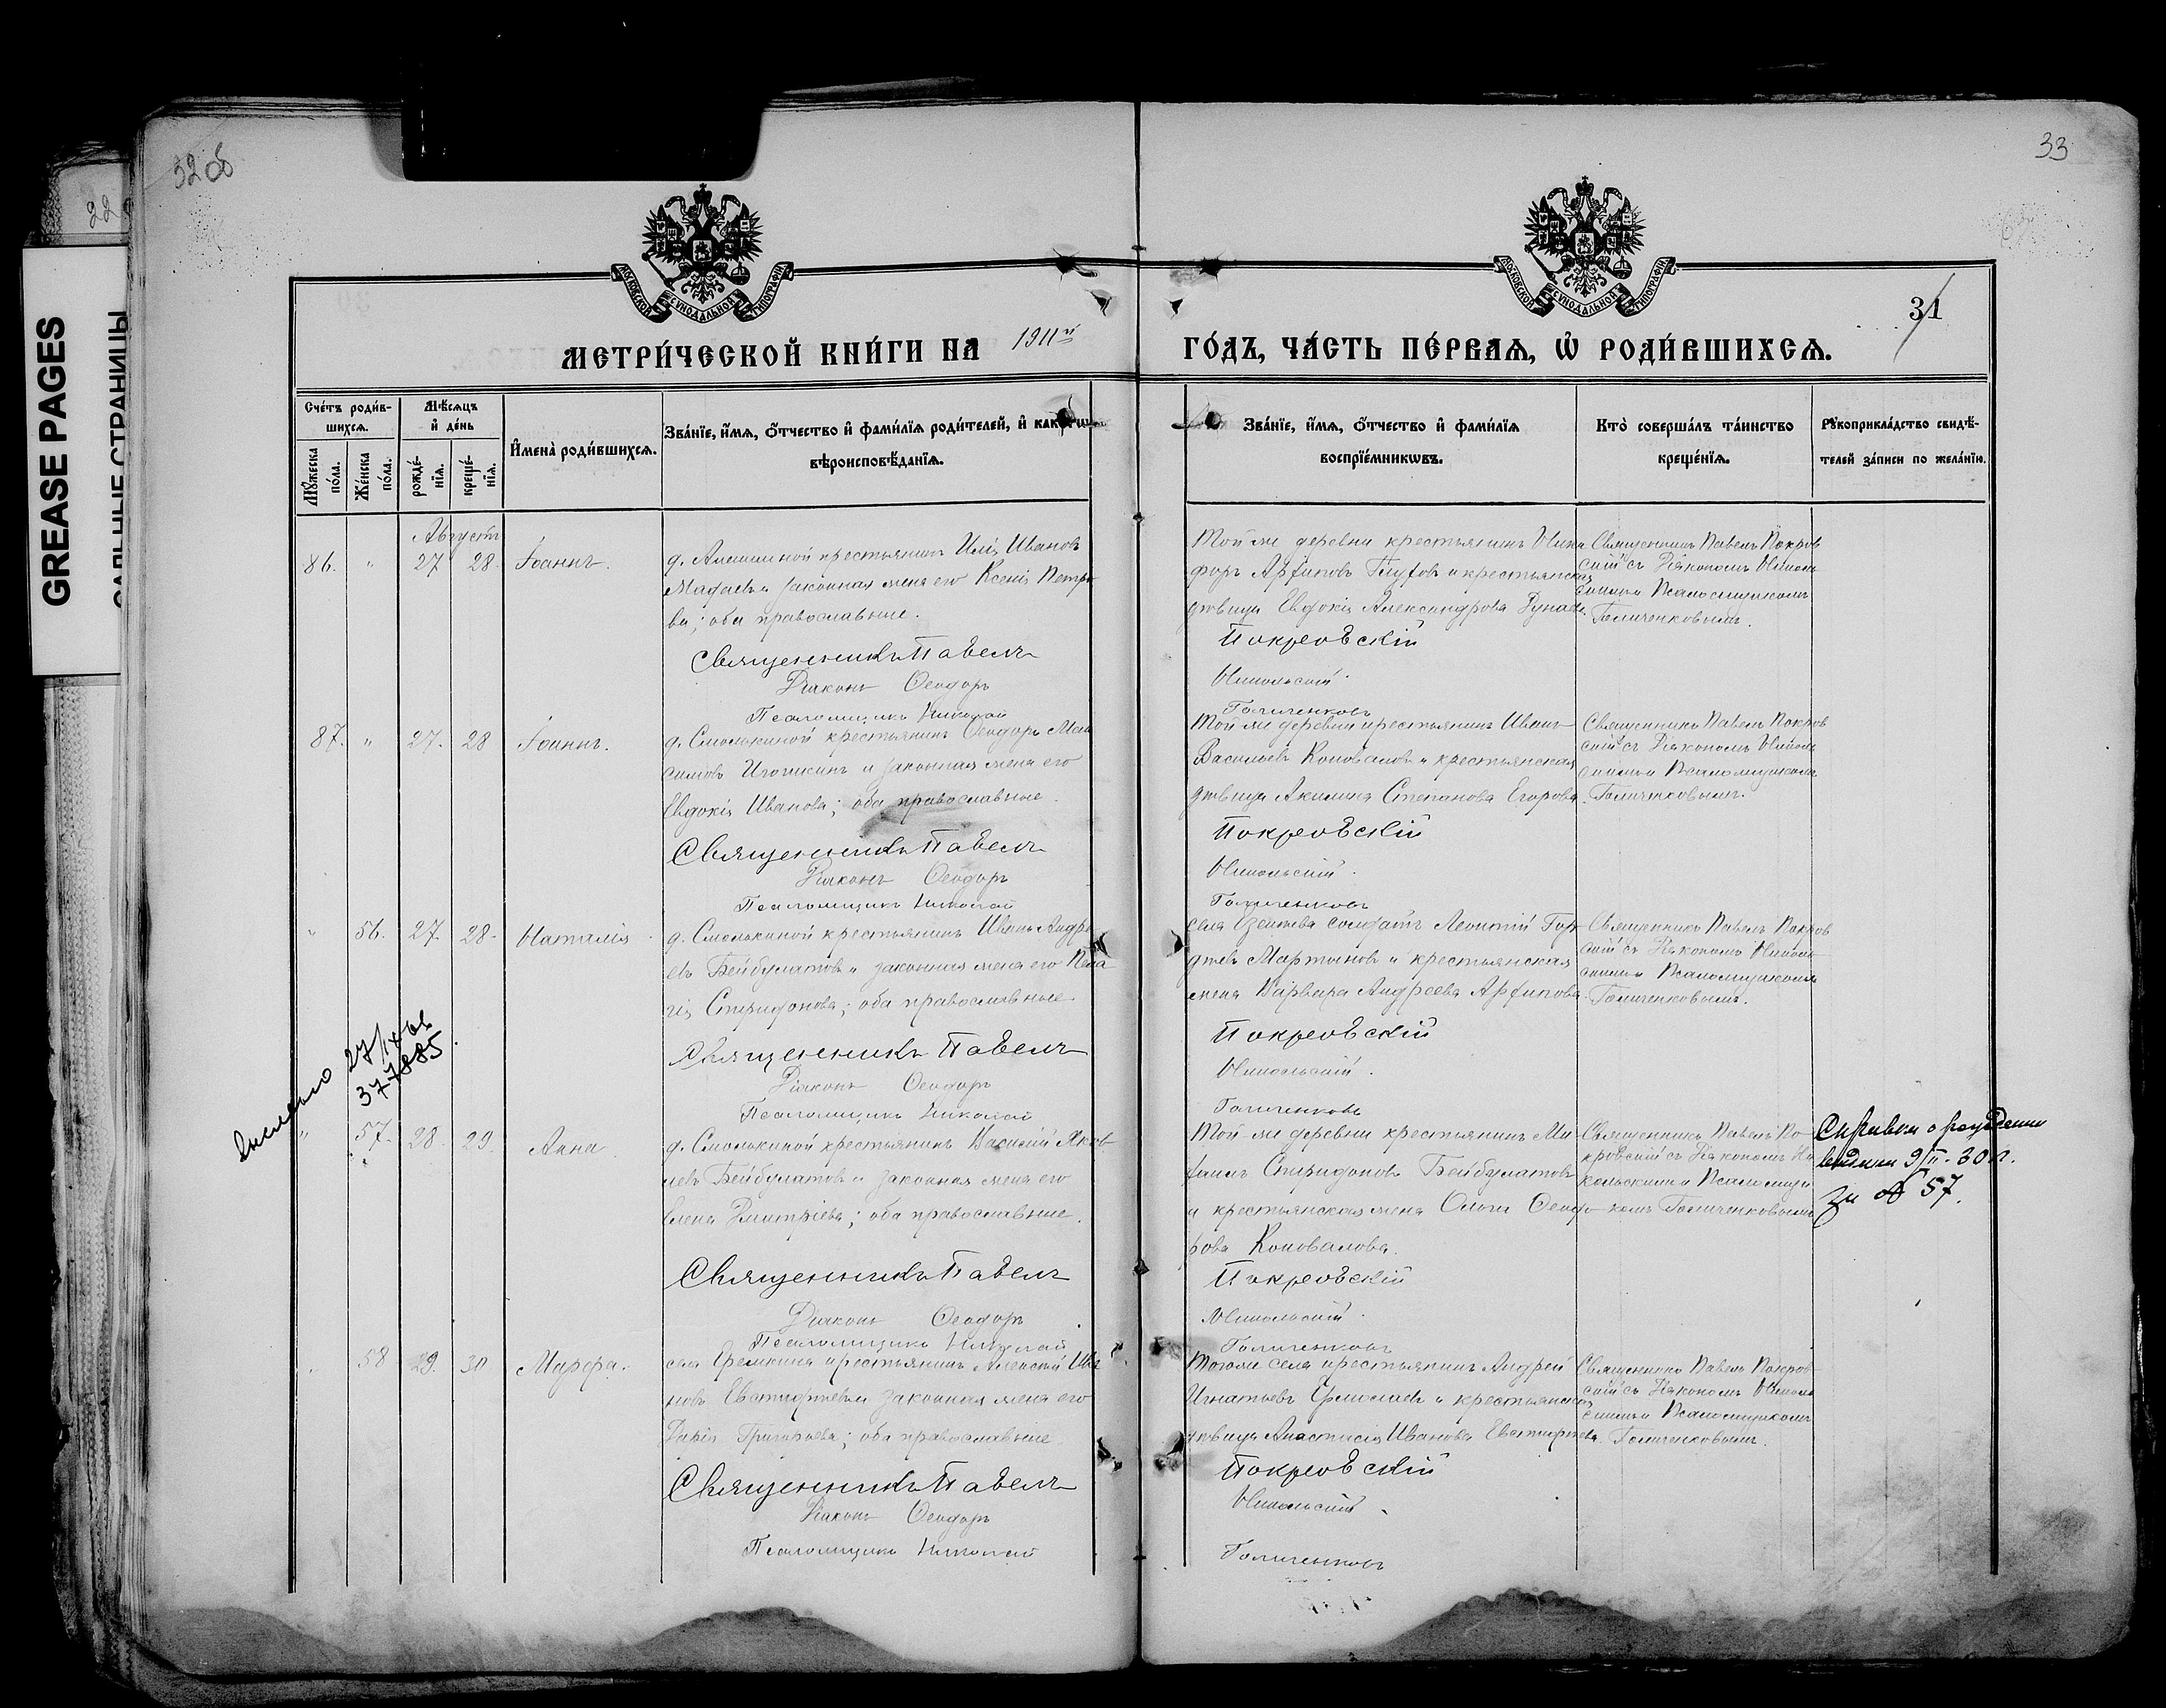 32 об
33
22
GREASE PAGES
САЛЬНЫЕ СТРАНИЦЫ
МОСКОВСКОЙ СѴНОДАЛЬНОЙ ТИПОГРАФІИ
МОСКОВСКОЙ СѴНОДАЛЬНОЙ ТИПОГРАФІИ
31
МЕТРИ́ЧЕСКОЙ КНИ́ГИ НА 1911й ГО́ДЪ, ЧА́СТЬ ПЕ́РВАѦ, Ѡ҆ РОДИ́ВШИХСѦ.
Сче́тъ роди́в-
шихсѧ.
Мꙋ́жеска по́ла.
Же́нска по́ла.
Мѣ́сѧцъ
и҆ де́нь
рожде́-
нїѧ.
креще́-
нїѧ.
И҆мена̀ роди́вшихсѧ.
Зва́нїе, и҆́мѧ, ѻ҆́тчество и҆ фами́лїѧ роди́телей, и҆
вѣроисповѣ́данїѧ.
Зва́нїе, и҆́мѧ, ѻ҆́тчество и҆ фами́лїѧ
воспрїе́мникѡвъ.
Кто̀ соверша́лъ та́инство
креще́нїѧ.
Рꙋкоприкла́дство свидѣ́-
телей за́писи по жела́нїю.
Августъ
86. " 27 28. Іоаннъ.
д. Алешиной крестьянинъ Илія Ивановъ
и законная жена его Ксенія Петро
ва; оба православные.
Священникъ Павелъ
Діаконъ Ѳеодоръ
Псаломщикъ Николай
Той-же деревни крестьянинъ Ники
форъ Архиповъ и крестьянская
дѣвица Евдокія Александрова
Покровскій
Никольскій.
Голиченковъ
Священникъ Павелъ Покров
скій съ Діакономъ Николь
скимъ и Псаломщикомъ
Голиченковымъ.
87. " 27. 28 Іоаннъ.
д. Смолькиной крестьянинъ Ѳеодоръ Мак
симовъ и законная жена его
Евдокія Иванова; оба православные.
Священникъ Павелъ
Діаконъ Ѳеодоръ
Псаломщикъ Николай
Той-же деревни крестьянинъ Иванъ
Васильевъ Коноваловъ и крестьянская
дѣвица Акилина Степанова Егорова.
Покровскій
Никольскій.
Голиченковъ
Священникъ Павелъ Покров
скій съ Діакономъ Николь
скимъ и Псаломщикомъ
Голиченковымъ.
" 56. 27. 28. Наталія
д. Смолькиной крестьянинъ Иванъ Андре
евъ Бейбулатовъ и законная жена его Пела
гія Спиридонова; оба православные.
Священникъ Павелъ
Діаконъ Ѳеодоръ
Псаломщикъ Николай
села солдатъ Леонтій Гор
дѣевъ Мартыновъ и крестьянская
жена Варвара Андреева Архипова.
Покровскій
Никольскій.
Голиченковъ
Священникъ Павелъ Покров
скій съ Діакономъ Николь
скимъ и Псаломщикомъ
Голиченковымъ.
377885
" 57. 28. 29. Анна.
д. Смолькиной крестьянинъ Василій Яков
левъ Бейбулатовъ и законная жена его
Елена Димитріева; оба православные.
Священникъ Павелъ
Діаконъ Ѳеодоръ
Псаломщикъ Николай
Той-же деревни крестьянинъ Ми
хаилъ Спиридоновъ Бейбулатовъ
и крестьянская жена Ольга Ѳеодо
рова Коновалова.
Покровскій
Никольскій.
Голиченковъ
Священникъ Павелъ По
кровскій съ Діакономъ Ни
кольскимъ и Псаломщи
комъ Голиченковымъ
Справки о рождении
выданы 9/II-30 г.
за № 57.
" 58 29. 30 Марѳа.
села крестьянинъ Алексій Ива
новъ Евстифеевъ и законная жена его
Дарія Григорьева; оба православные
Священникъ Павелъ
Діаконъ Ѳеодоръ
Псаломщикъ Николай
Того-же села крестьянинъ Андрей
Игнатьевъ Ермолаевъ и крестьянская
дѣвица Анастасія Иванова Евстифеева.
Покровскій
Никольскій.
Голиченковъ
Священникъ Павелъ Покров
скій съ Діакономъ Николь
скимъ и Псаломщикомъ
Голиченковымъ.